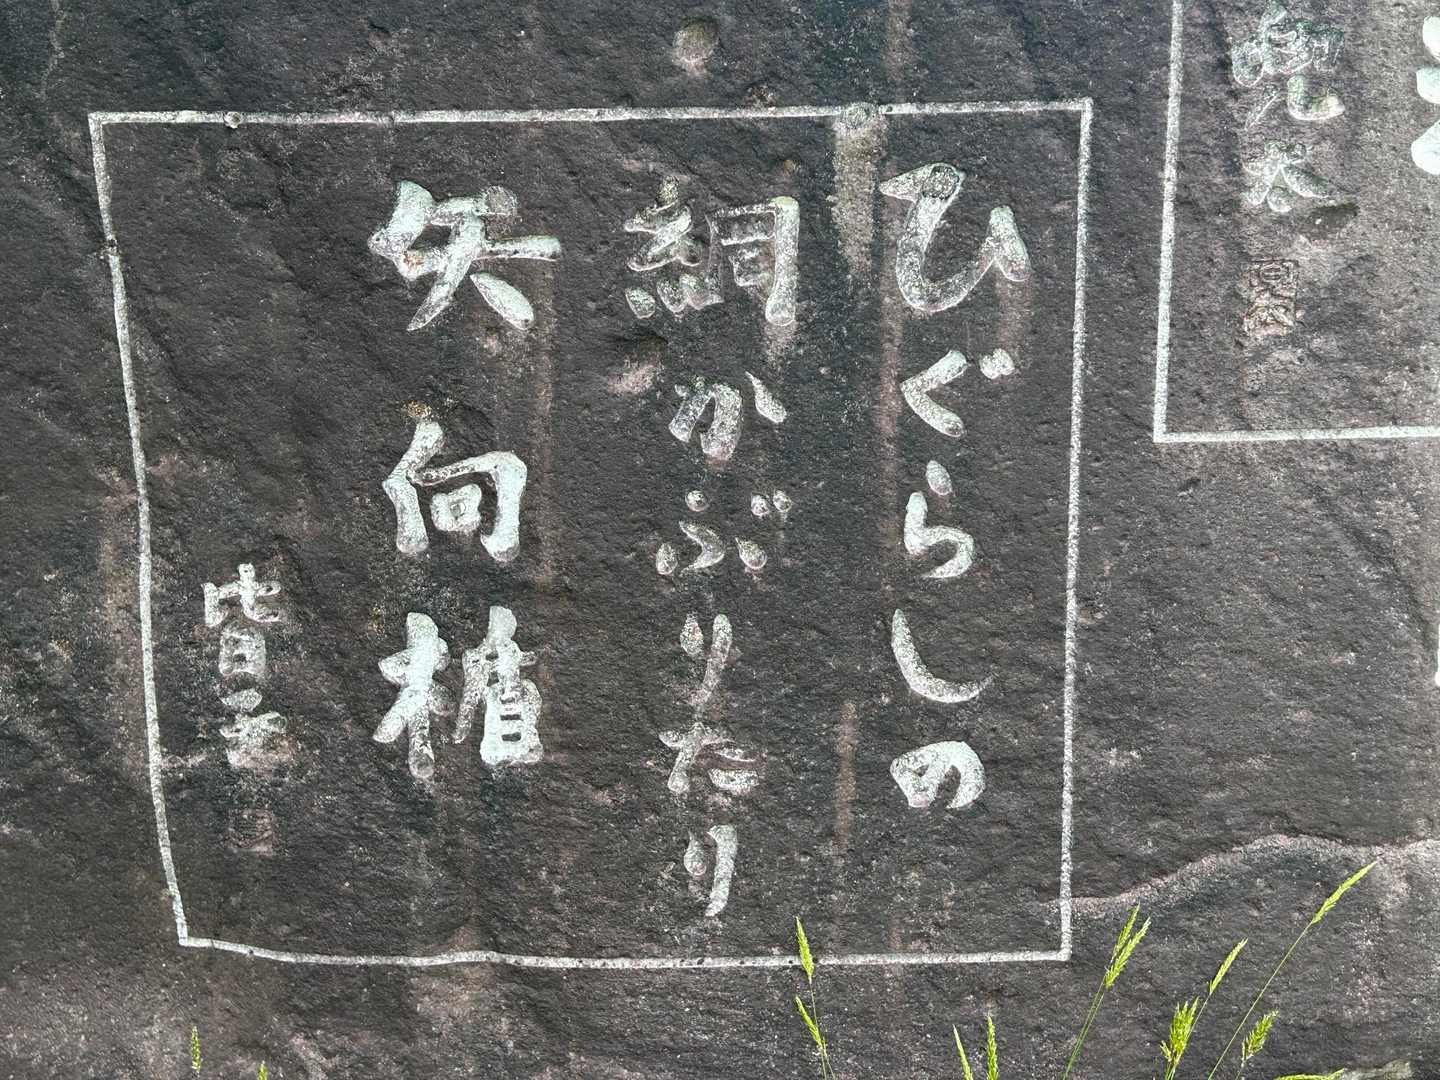 兜太
ひぐらしの
網かぶりたり
矢向楯
皆子